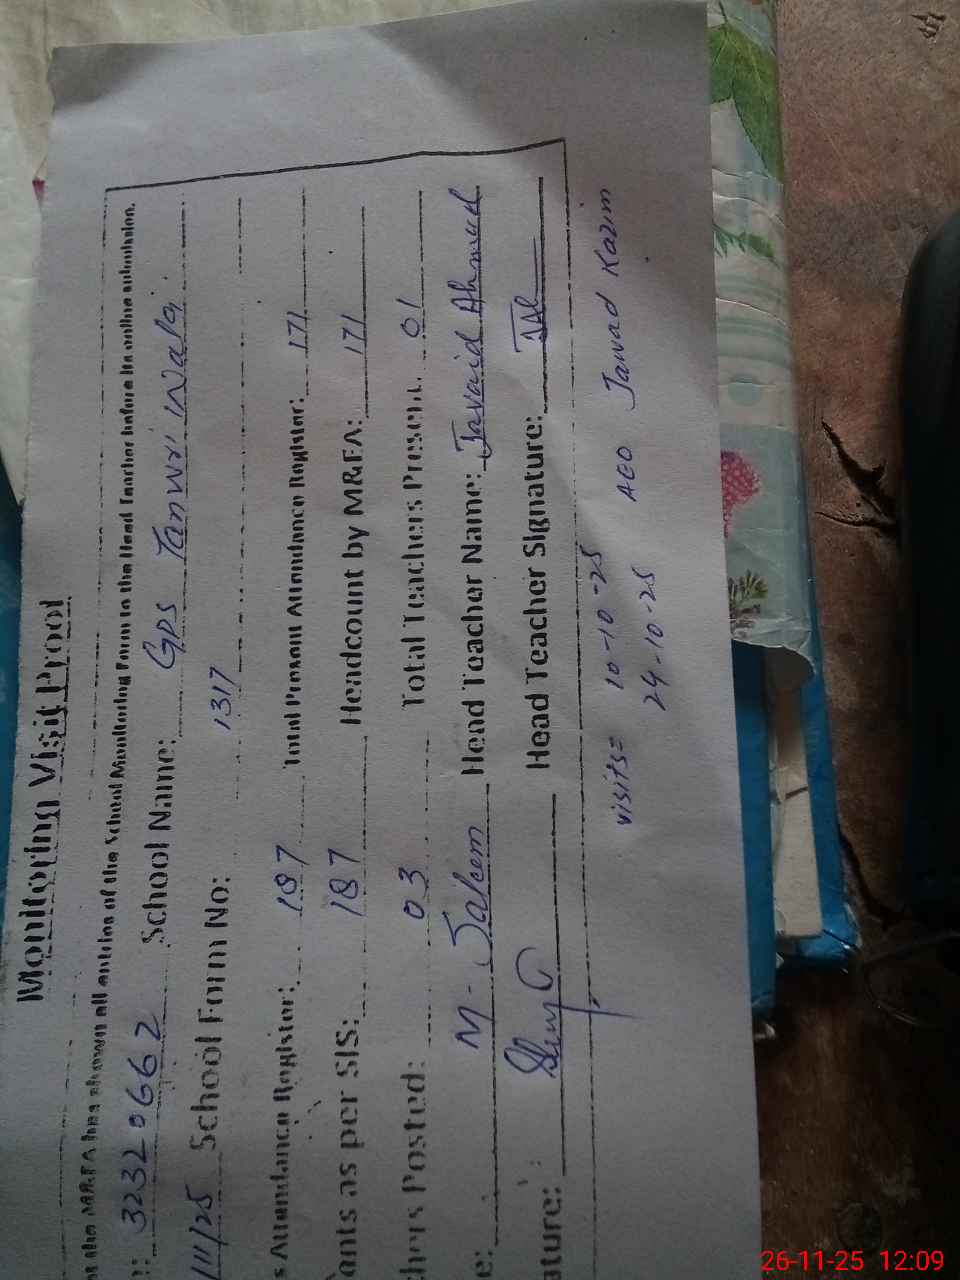 Monitoring Visit Proof
the MEA has shown all entries of the School Monitoring Form to the Head Teacher before its online submission.
: 32320662 School Name: GPS Tanwri Wala
/11/25 School Form No: 1317
s Attendance Register: 187 Total Present Attendance Register: 171
ants as per SIS: 187 Headcount by MEA: 171
hers Posted: 03 Total Teachers Present: 01
e: M - Saleem Head Teacher Name: Javaid Ahmad
ature: Head Teacher Signature:
visits= 10-10-25 AEO Jawad Kazim
24-10-25
26-11-25 12:09